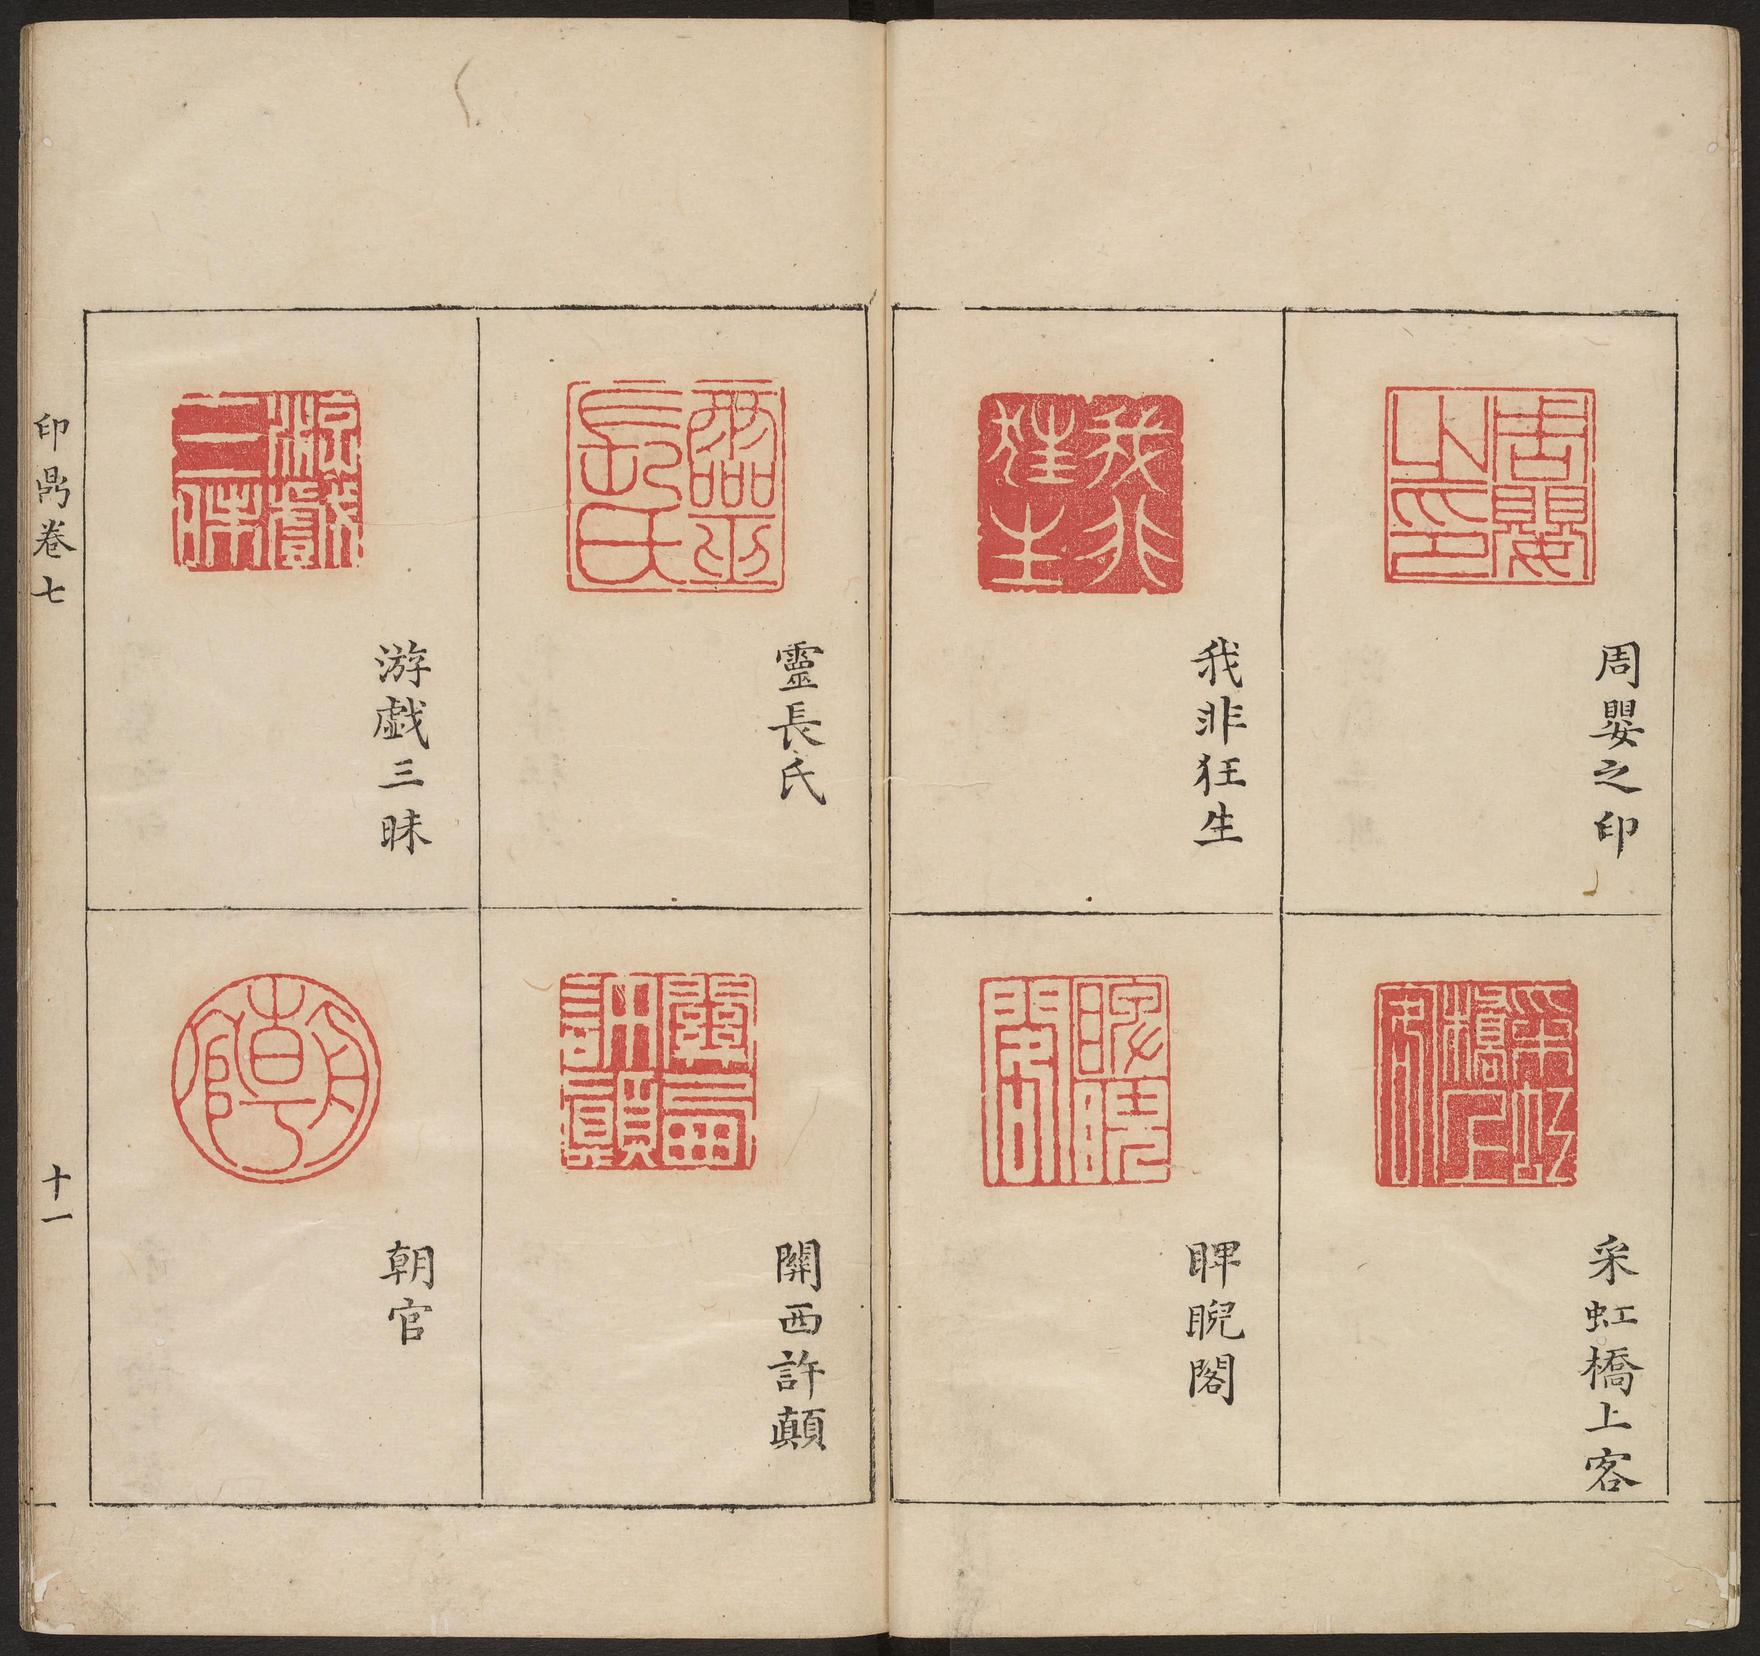 周嬰之印
采虹橋上客
我非狂生
睥睨閣
靈長氏
關西許顛
游戯三昧
朝官
印鼎卷七
十一